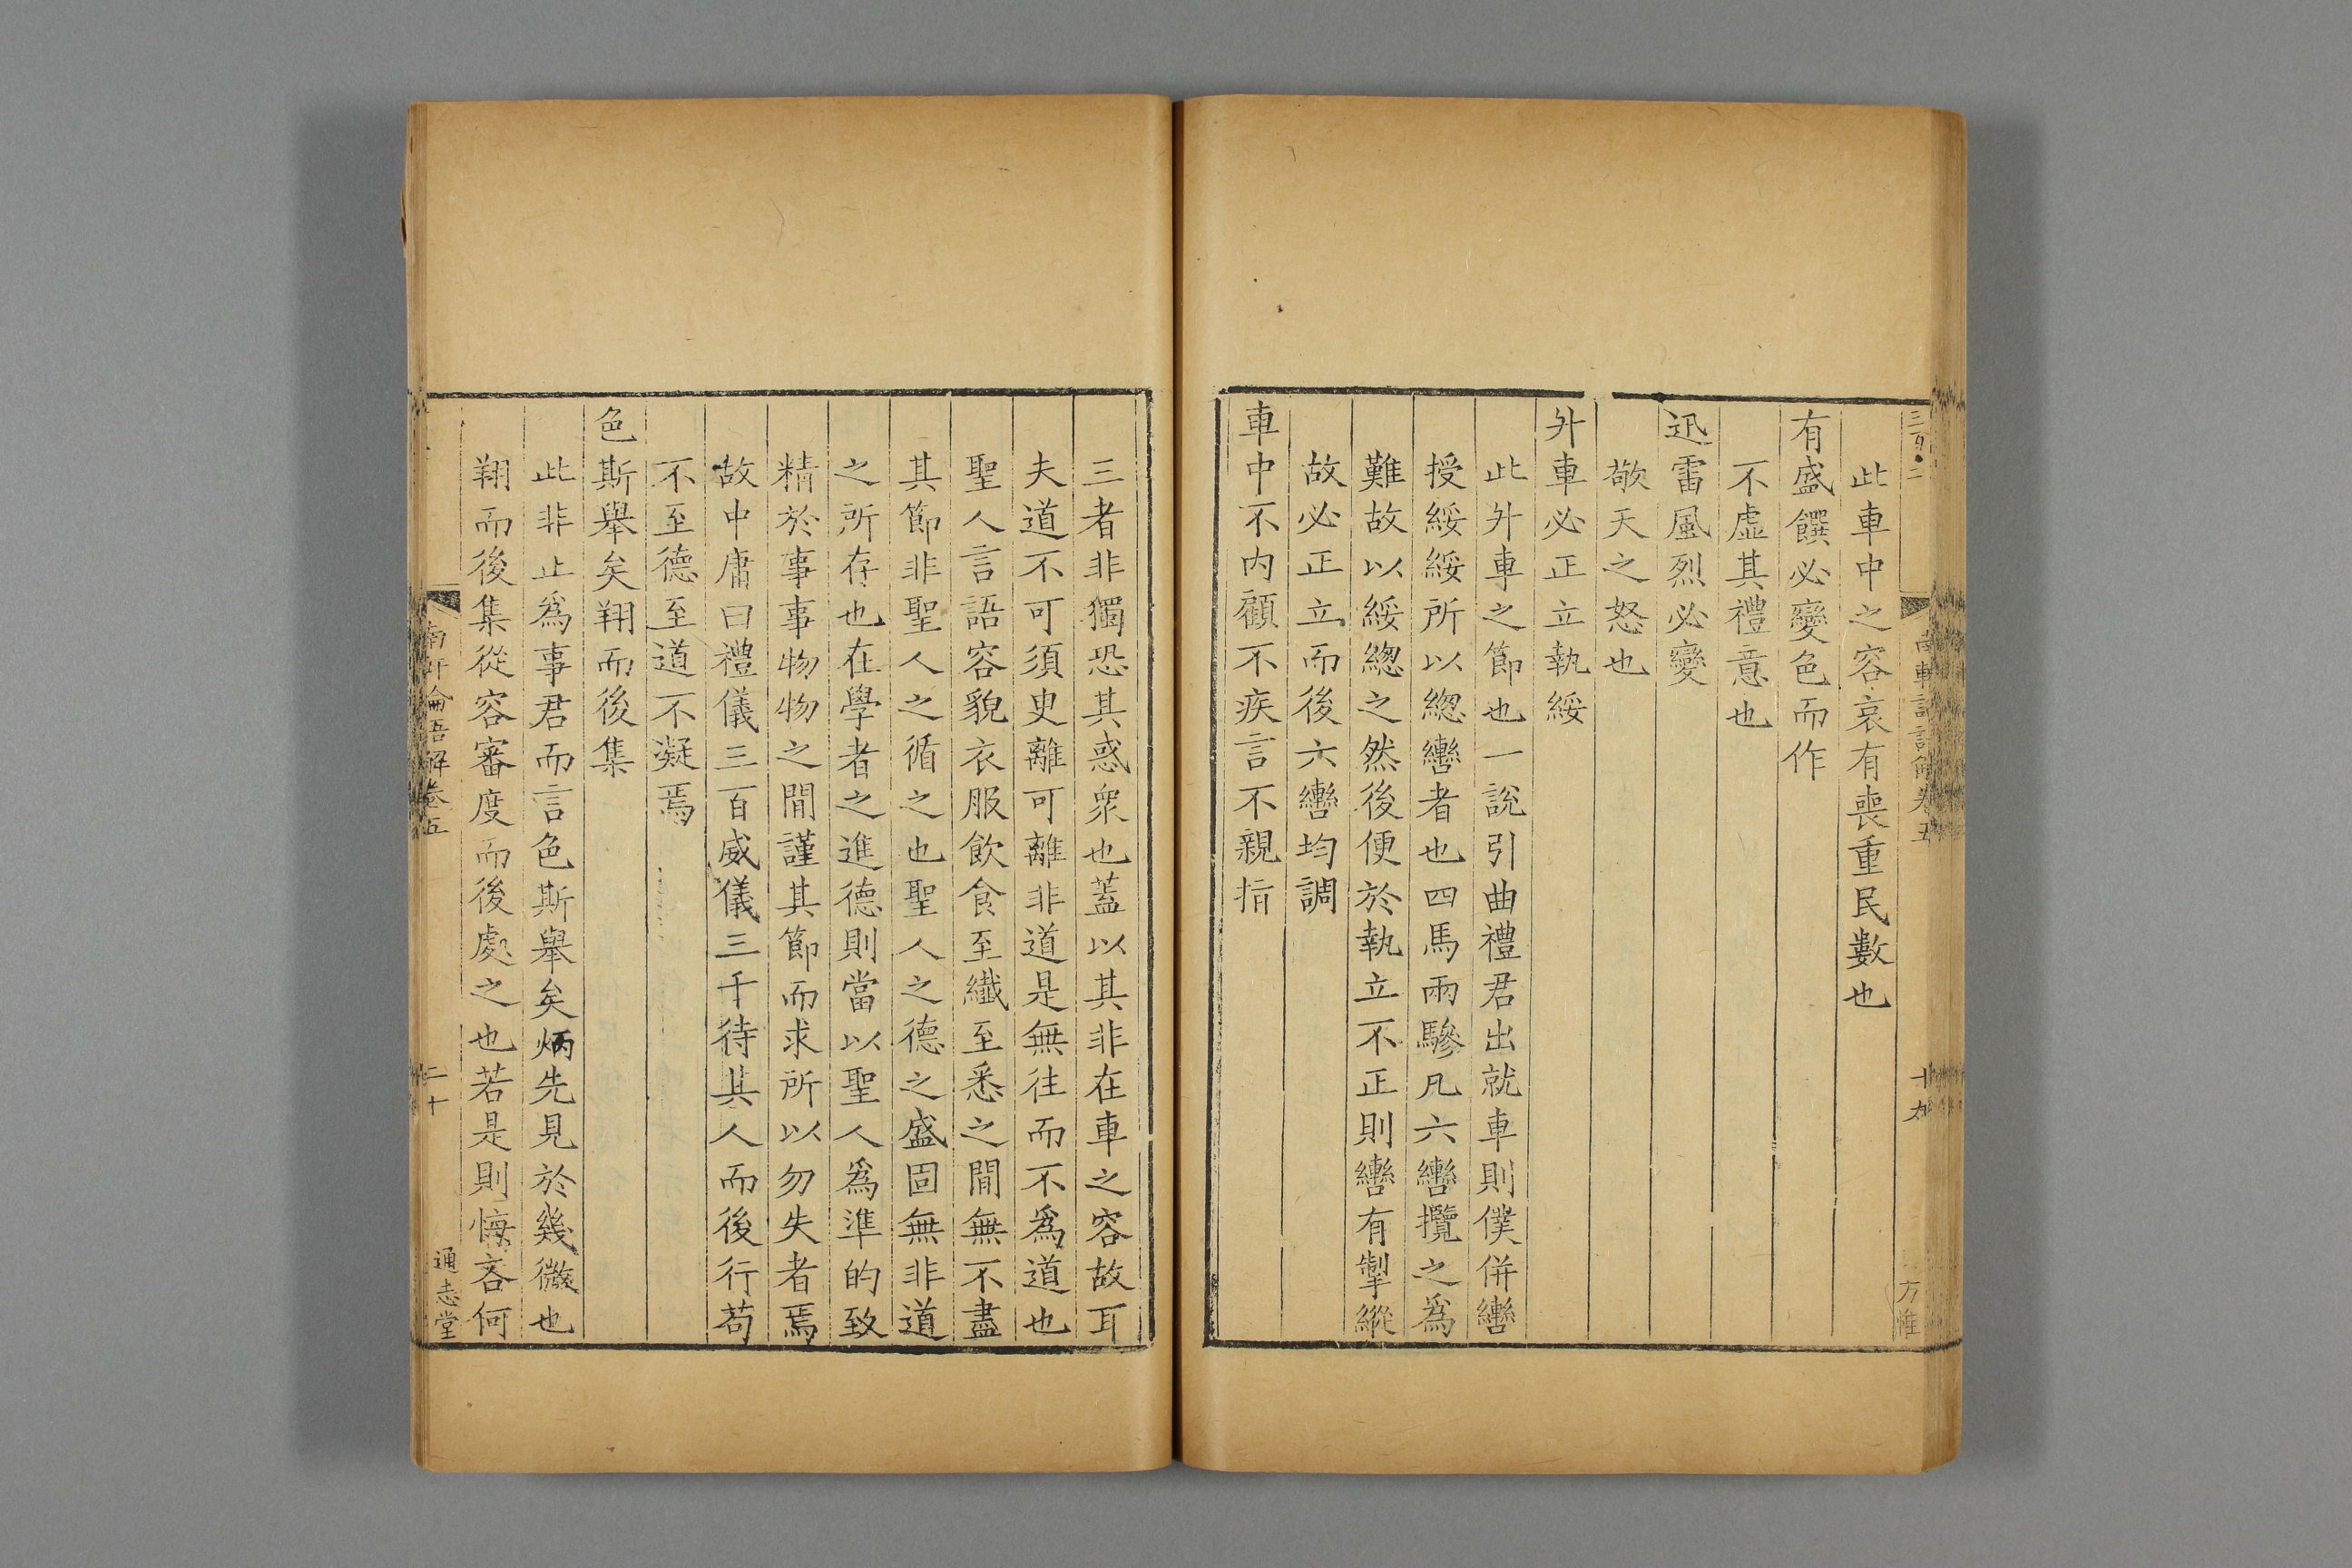 此車中之容哀有喪重民數也
有盛饌必變色而作
不虛其禮意也
迅雷風烈必變
敬天之怒也
升車必正立執綏
此升車之節也一說引曲禮君出就車則僕併轡
授綏綏所以緫轡者也四馬兩驂凡六轡攬之爲
難故以綏緫之然後便於執立不正則轡有掣縱
故必正立而後六轡均調
車中不内顧不疾言不親指
十九
三者非獨恐其惑衆也蓋以其非在車之容故耳
夫道不可須史離可離非道是無往而不爲道也
聖人言語容貌衣服飲食至纖至悉之閒無不盡
其節非聖人之循之也聖人之德之盛固無非道
之所存也在學者之進德則當以聖人爲準的致
精於事事物物之閒謹其節而求所以勿失者焉
故中庸曰禮儀三百威儀三千待其人而後行苟
不至德至道不凝焉
色斯舉矣翔而後集
此非止爲事君而言色斯舉矣炳先見於幾微也
翔而後集從容審度而後處之也若是則悔吝何
南軒論語解卷五
二十
通志堂